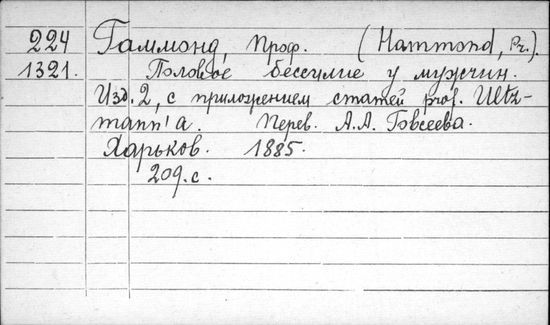 224 Гаммонд, проф. (Hammond, Pr.).
1321. Половое бессилие у мужчин.
Изд. 2, с приложением статей prof. Ultz-
mann'a. Перев. А.А. Говсеева.
Харьков. 1885.
209.с.